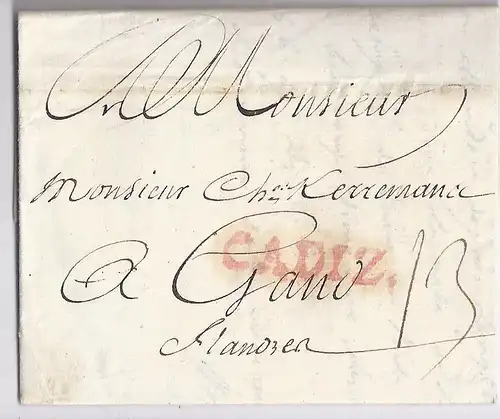 A Monsieur
Monsieur Chs Kerremans
CADIZ.
A Gand
Flandres 13